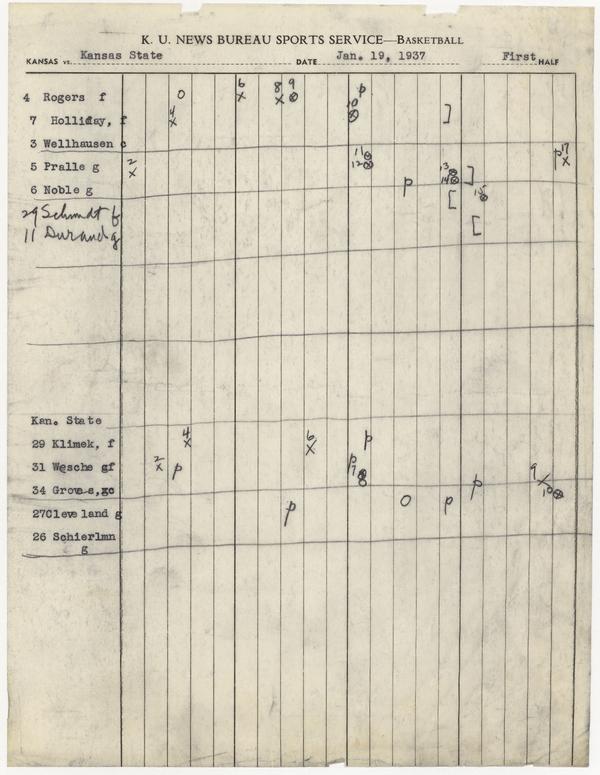 K. U. NEWS BUREAU SPORTS SERVICE—BASKETBALL
KANSAS vs. Kansas State DATE Jan. 19, 1937 First HALF
4 Rogers f O 6 X 8 X 9 ⊗ p
7 Holliday, f 4 X 10 ⊗ ]
3 Wellhausen c
5 Pralle g 2 X 11 ⊗ 12 ⊗ 13 ⊗ 14 ⊗ ] p 17 X
6 Noble g p [ 15 ⊗
29 Schmidt f
11 Durand g [
Kan. State
29 Klimek, f 4 X 6 X p
31 Wesche gf 2 X p p 7 ⊗ 8
34 Groves, gc p 9 X 10 ⊗
27Cleveland g p O p
26 Schierlmn
g